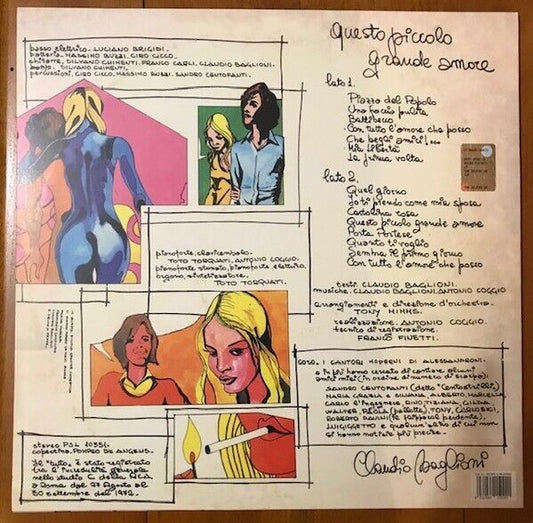 Questo piccolo
grande amore
basso elettrico. LUCIANO BRIGIDI.
batteria. MASSIMO BUZZI, CIRO CICCO.
chitarre. SILVANO CHIMENTI, FRANCO CARLI, CLAUDIO BAGLIONI.
banjo. SILVANO CHIMENTI.
percussioni. CIRO CICCO, MASSIMO BUZZI, SANDRO CENTOFANTI.
lato 1.
Piazza del Popolo
Una faccia pulita
Battibecco
Con tutto l'amore che posso
Che begli amici!...
Mia libertà
La prima volta
lato 2.
Quel giorno
Io ti prendo come mia sposa
Cartolina rosa
Questo piccolo grande amore
Porta Portese
Quanto ti voglio
Sembra il primo giorno
Con tutto l'amore che posso
testi. CLAUDIO BAGLIONI.
musiche. CLAUDIO BAGLIONI, ANTONIO COGGIO
arrangiamenti e direzione d'orchestra.
TONY MIMMS.
realizzazione. ANTONIO COGGIO.
tecnico di registrazione.
FRANCO FINETTI.
pianoforte, clavicembalo.
TOTO TORQUATI, ANTONIO COGGIO.
pianoforte stonato, pianoforte elettrico,
organo, sintetizzatore.
TOTO TORQUATI.
coro. I CANTORI MODERNI DI ALESSANDRONI.
e in più hanno cercato di cantare alcuni
amici miei (in ordine di numero di scarpe)
SANDRO CENTOFANTI (detto "Centostrilli")
MARIA GRAZIA e SILVANA, ALBERTO, MARCELLA
CARLO l'ingegnere, GINO, TIZIANA, GILDA
WALTER, PAOLA (palletta), TONY, CARLO
ROBERTO DAVINI
LUIGIGETTO e qualcun'altro di cui non
si hanno notizie più precise.
stereo PSL 10551.
copertina. POMPEO DE ANGELIS.
Il "tutto" è stato registrato
tra l'incredulità generale
nello studio C della RCA
a Roma dal 27 Agosto al
30 settembre del 1972.
Claudio Baglioni